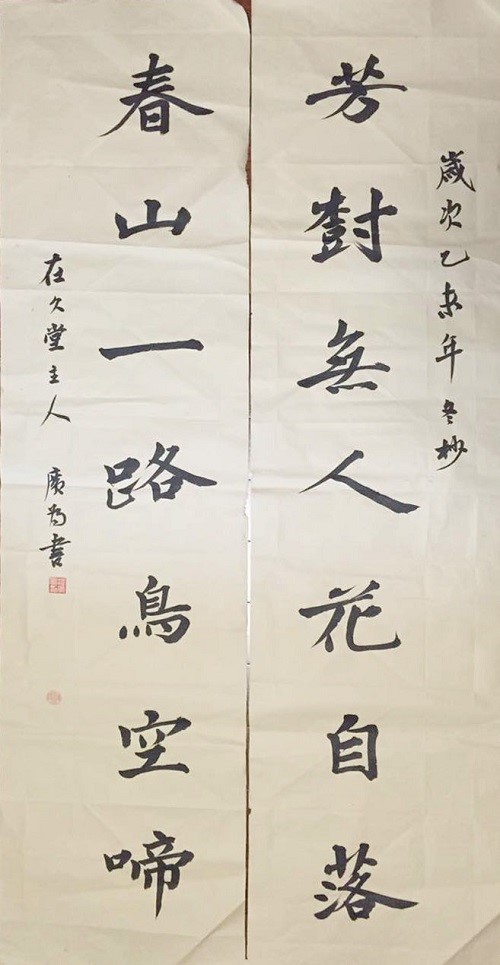 歲次乙未年冬杪
芳樹無人花自落
春山一路鳥空啼
在久堂主人 廣為書